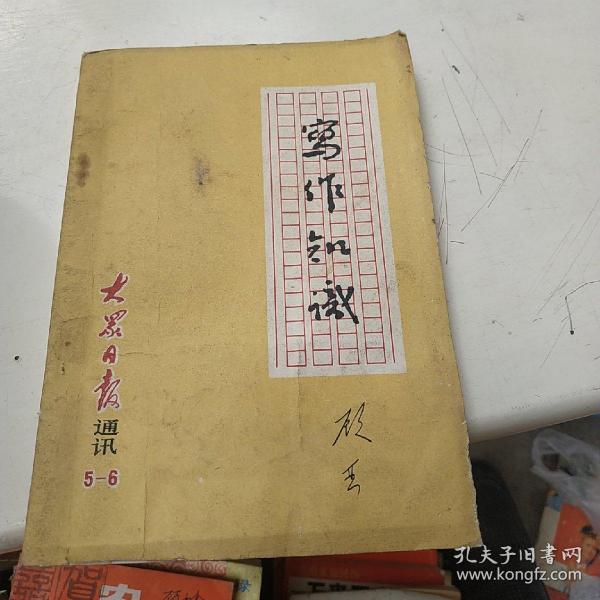 寫作知識
大眾日报
通讯
5-6
孔夫子旧书网
www.kongfz.com